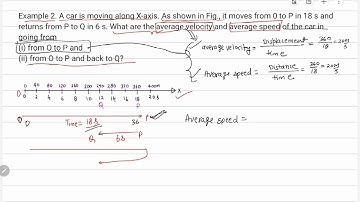 Example 2. A car is moving along X-axis. As shown in Fig., it moves from O to P in 18 s and
returns from P to Q in 6 s. What are the average velocity and average speed of the car in
going from
(i) from O to P and
(ii) from O to P and back to Q?
average velocity = Displacement / time = 360 / 18 = 20 m/s
Average speed = Distance / time = 360 / 18 = 20 m/s
0 40 80 120 160 200 240 280 320 360 400
O 0 2 4 6 8 10 12 14 16 18 20 X
Q P
O Time = 18s 36 P
Q 6s P
Average speed =